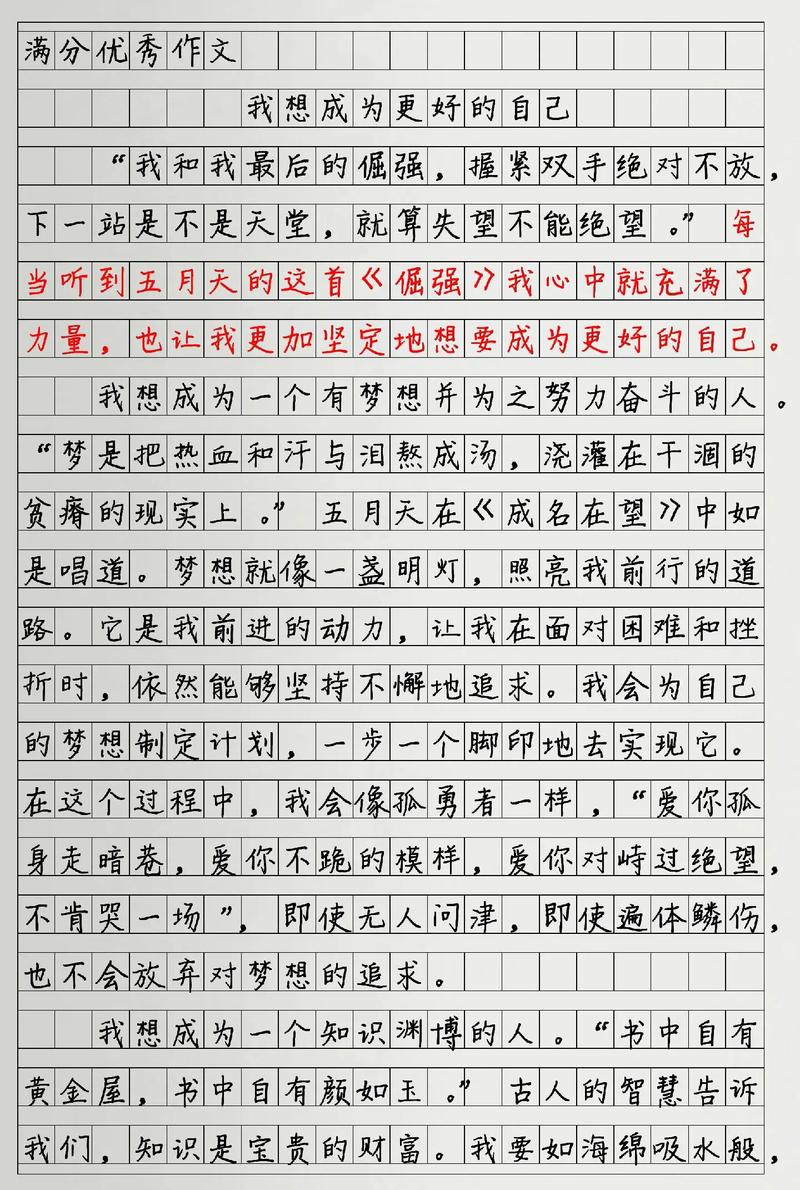 满分优秀作文
我想成为更好的自己
“我和我最后的倔强，握紧双手绝对不放，
下一站是不是天堂，就算失望不能绝望。”每
当听到五月天的这首《倔强》我心中就充满了
力量，也让我更加坚定地想要成为更好的自己。
我想成为一个有梦想并为之努力奋斗的人。
“梦是把热血和汗与泪熬成汤，浇灌在干涸的
贫瘠的现实上。”五月天在《成名在望》中如
是唱道。梦想就像一盏明灯，照亮我前行的道
路。它是我前进的动力，让我在面对困难和挫
折时，依然能够坚持不懈地追求。我会为自己
的梦想制定计划，一步一个脚印地去实现它。
在这个过程中，我会像孤勇者一样，“爱你孤
身走暗巷，爱你不跪的模样，爱你对峙过绝望，
不肯哭一场”，即使无人问津，即使遍体鳞伤，
也不会放弃对梦想的追求。
我想成为一个知识渊博的人。“书中自有
黄金屋，书中自有颜如玉。”古人的智慧告诉
我们，知识是宝贵的财富。我要如海绵吸水般，